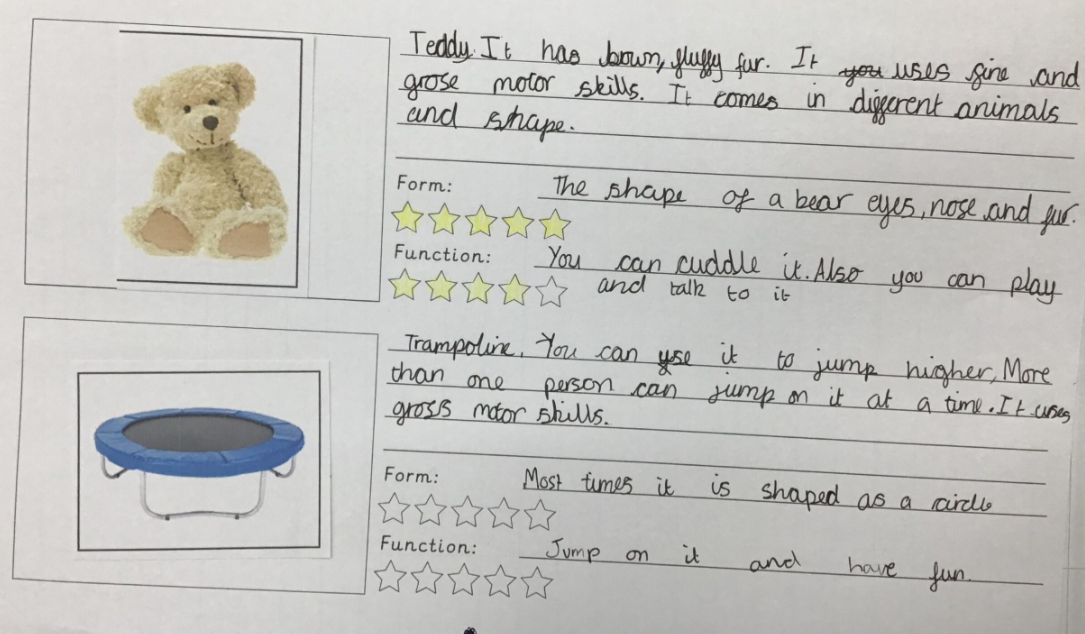 Teddy. It has brown, fluffy fur. It you uses fine and
grose motor skills. It comes in different animals
and shape.
Form: The shape of a bear eyes, nose and fur.
Function: You can cuddle it. Also you can play
and talk to it
Trampoline. You can use it to jump higher, More
than one person can jump on it at a time. It uses
gross motor skills.
Form: Most times it is shaped as a circle
Function: Jump on it and have fun.